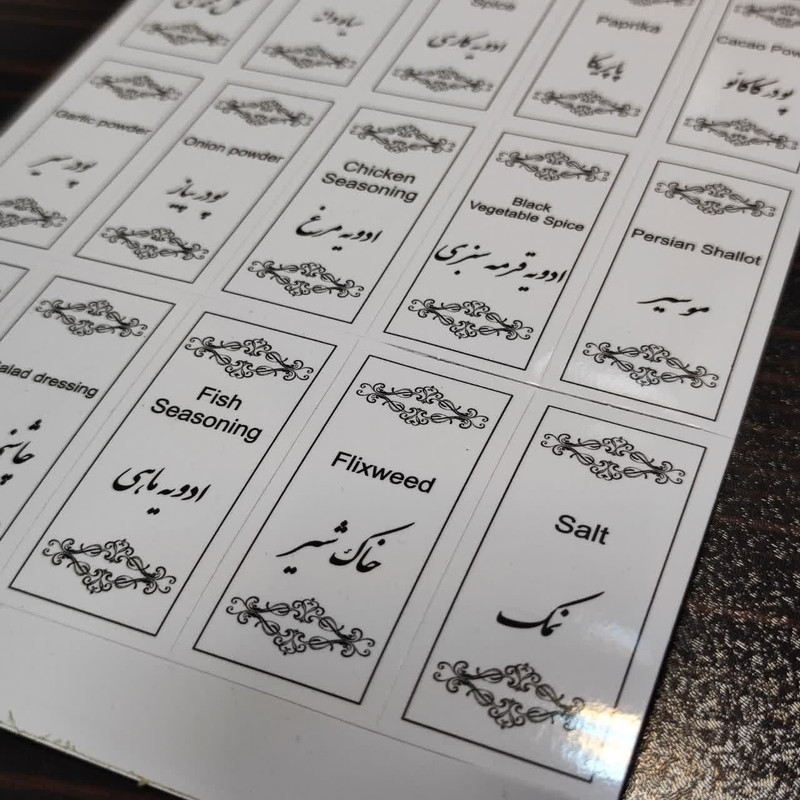 سیاهدانه
Spice
ادویه کاری
Paprika
پاپریکا
Cacao Pow
پودر کاکائو
Garlic powder
پودر سیر
Onion powder
پودر پیاز
Chicken
Seasoning
ادویه مرغ
Black
Vegetable Spice
ادویه قرمه سبزی
Persian Shallot
موسیر
alad dressing
Fish
Seasoning
ادویه ماهی
Flixweed
خاک شیر
Salt
نمک